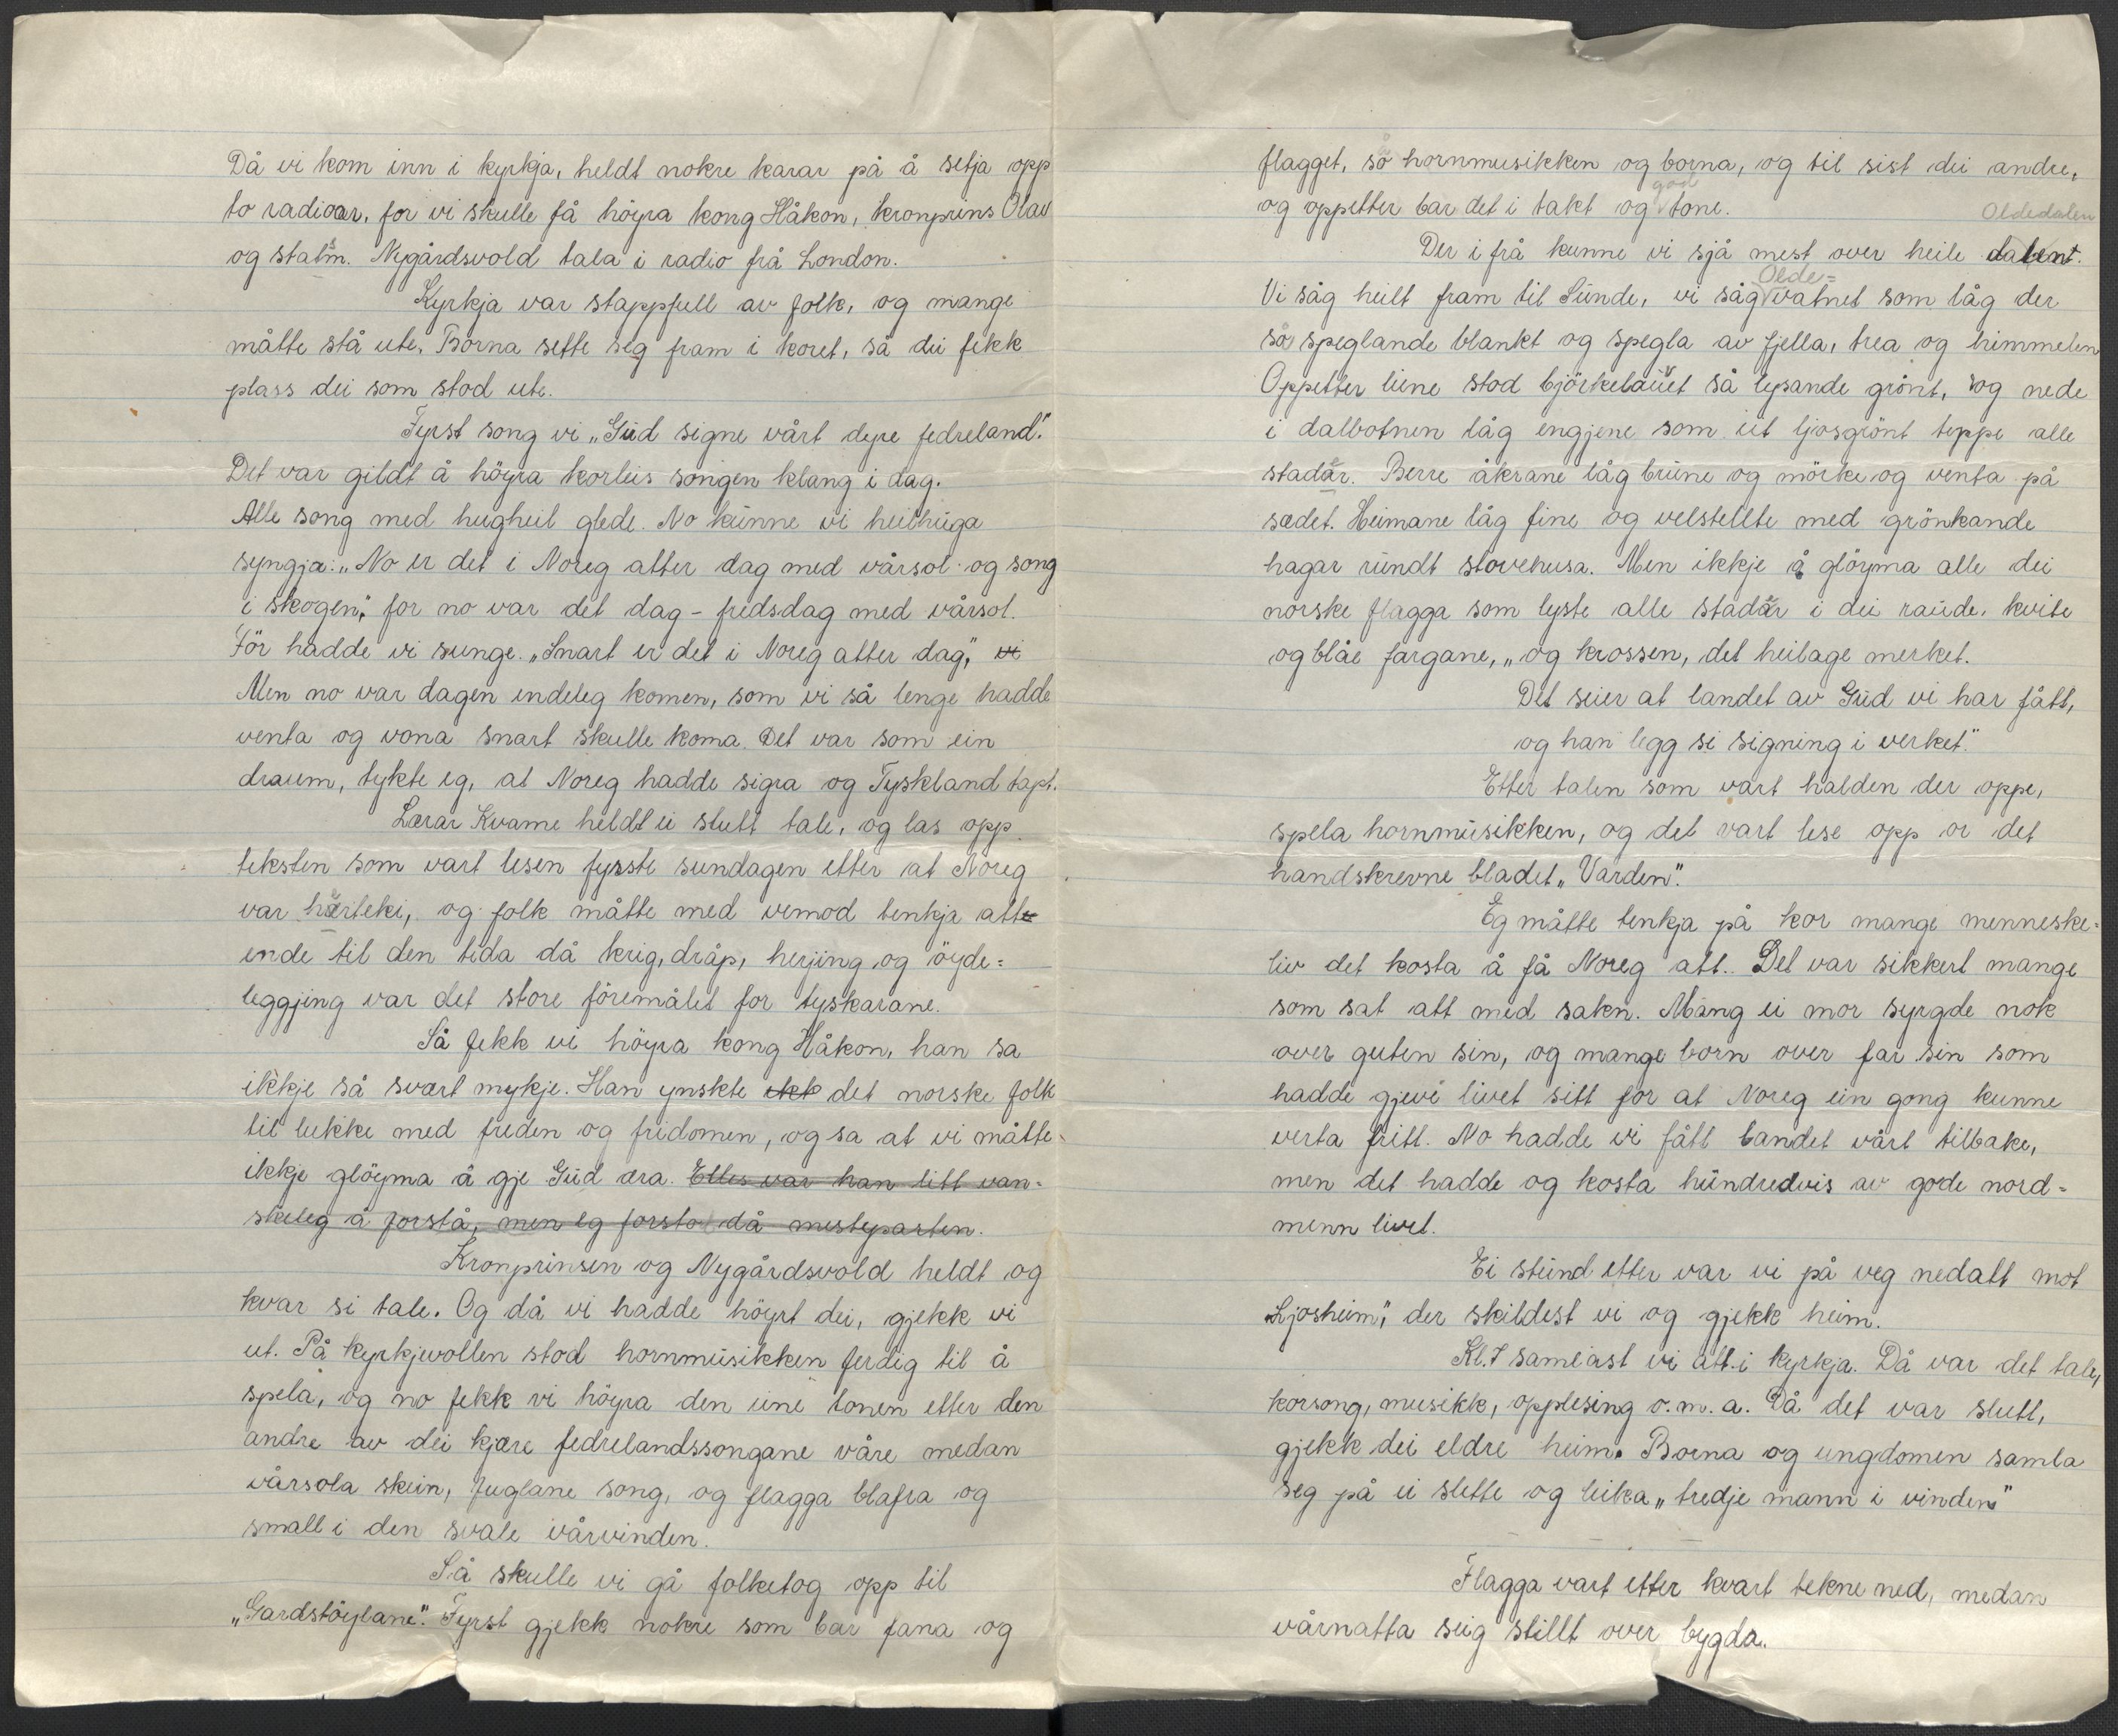 Då vi kom inn i kyrkja, heldt nokre karar på å setja opp
to radioar, for vi skulle få höyra kong Håkon, kronprins Olav
og statsm. Nygårdsvold tala i radio frå London.
Kyrkja var stappfull av folk, og mange
måtte stå ute. Borna sette seg fram i koret, så dei fekk
plass dei som stod ute.
Fyrst song vi „Gud signe vårt dyre fedreland".
Det var gildt å höyra korleis songen klang i dag.
Alle song med hugheil glede. No kunne vi heilhuga
syngja: „No er det i Noreg atter dag med vårsol og song
i skogen", for no var det dag - fredsdag med vårsol.
För hadde vi sunge. „Snart er det i Noreg atter dag", vi
Men no var dagen endeleg komen, som vi så lenge hadde
venta og vona snart skulle koma. Det var som ein
draum, tykte eg, at Noreg hadde sigra og Tyskland tapt.
Lærar Kvame heldt ei stutt tale, og las opp
teksten som vart lesen fyrste sundagen etter at Noreg
var hærteki, og folk måtte med vemod tenkja atte
ende til den tida då krig, dråp, herjing og öyde=
leggjing var det store föremålet for tyskarane.
Så fekk vi höyra kong Håkon, han sa
ikkje så svært mykje. Han ynskte ikk det norske folk
til lukke med freden og fridomen, og sa at vi måtte
ikkje glöyma å gje Gud æra. Elles var han litt van=
skeleg å forstå, men eg forsto då mesteparten.
Kronprinsen og Nygårdsvold heldt og
kvar si tale. Og då vi hadde höyrt dei, gjekk vi
ut. På kyrkjevollen stod hornmusikken ferdig til å
spela, og no fekk vi höyra den eine tonen etter den
andre av dei kjære fedrelandssongane våre medan
vårsola skein, fuglane song, og flagga blafra og
small i den svale vårvinden.
Så skulle vi gå folketog opp til
„Gardstöylane". Fyrst gjekk nokre som bar fana og
flagget, så hornmusikken og borna, og til sist dei andre,
og oppetter bar det i takt og god tone.
Oldedalen
Der i frå kunne vi sjå mest over heile dalent.
Vi såg heilt fram til Sunde, vi såg Olde=vatnet som låg der
så speglande blankt og spegla av fjella, trea og himmelen
Oppetter liene stod björkelauvet så lysande grönt, og nede
i dalbotnen låg engjene som eit ljosgrönt teppe alle
stadar. Berre åkrane låg brune og mörke og venta på
sædet. Heimane låg fine og velstellte med grönkande
hagar rundt stovehusa. Men ikkje å glöyma alle dei
norske flagga som lyste alle stadar i dei raude, kvite
og blåe fargane, „og krossen, det heilage merket.
Det seier at landet av Gud vi har fått,
og han legg si signing i verket."
Etter talen som vart halden der oppe,
spela hornmusikken, og det vart lese opp or det
handskrevne bladet „Varden".
Eg måtte tenkja på kor mange menneske=
liv det kosta å få Noreg att. Det var sikkert mange
som sat att med sakn. Mang ei mor syrgde nok
over guten sin, og mange born over far sin som
hadde gjevi livet sitt for at Noreg ein gong kunne
verta fritt. No hadde vi fått landet vårt tilbake,
men det hadde og kosta hundredvis av gode nord=
menn livet.
Ei stund etter var vi på veg nedatt mot
„Ljosheim", der skildest vi og gjekk heim.
Kl. 7 sameast vi att i kyrkja. Då var det tale,
korsong, musikk, opplesing o.m.a. Då det var slutt,
gjekk dei eldre heim. Borna og ungdomen samla
seg på ei slette og leika „tredje mann i vinden"
Flagga vart etter kvart tekne ned, medan
vårnatta seig stillt over bygda.